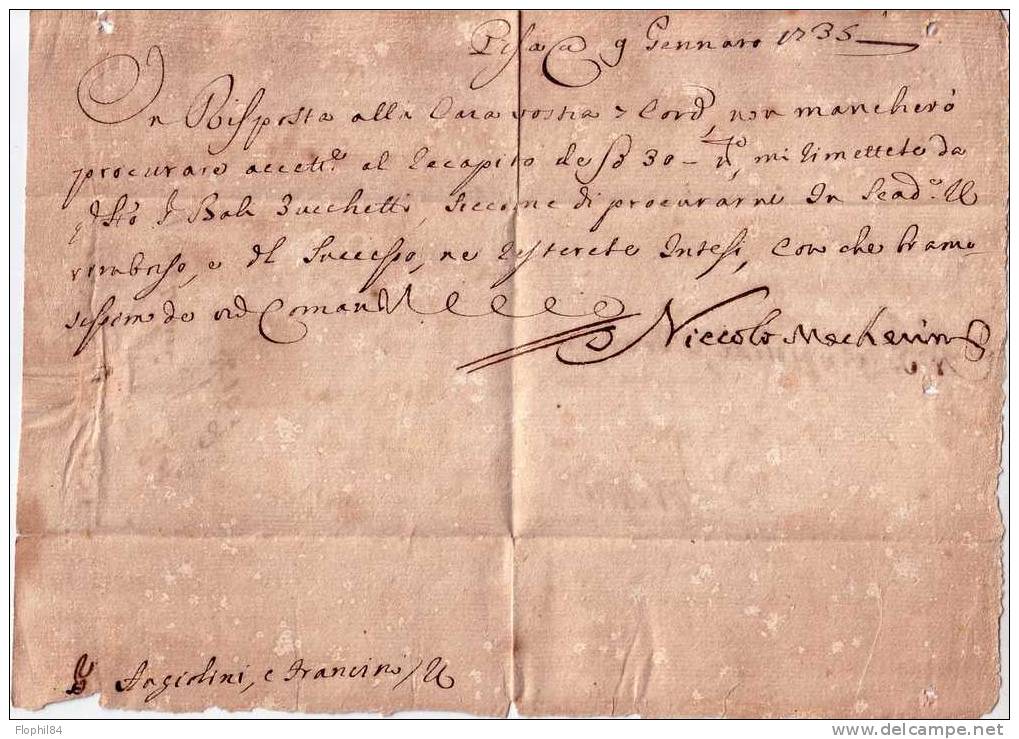 Pisa 9 Gennaro 1735
In Risposta alla Cara vostra Cord, non mancherò
procurare accett.e al Recapito de 30 - mi rimettete da
Bali Zucchetti, siccome di procurarni In Scad.a Il
rimborso, e del Successo, ne resterete Intesi, Con che bramo
Comandi
Niccolo Mecherini
Angiolini, e Francini
Flophil84 www.delcampe.net